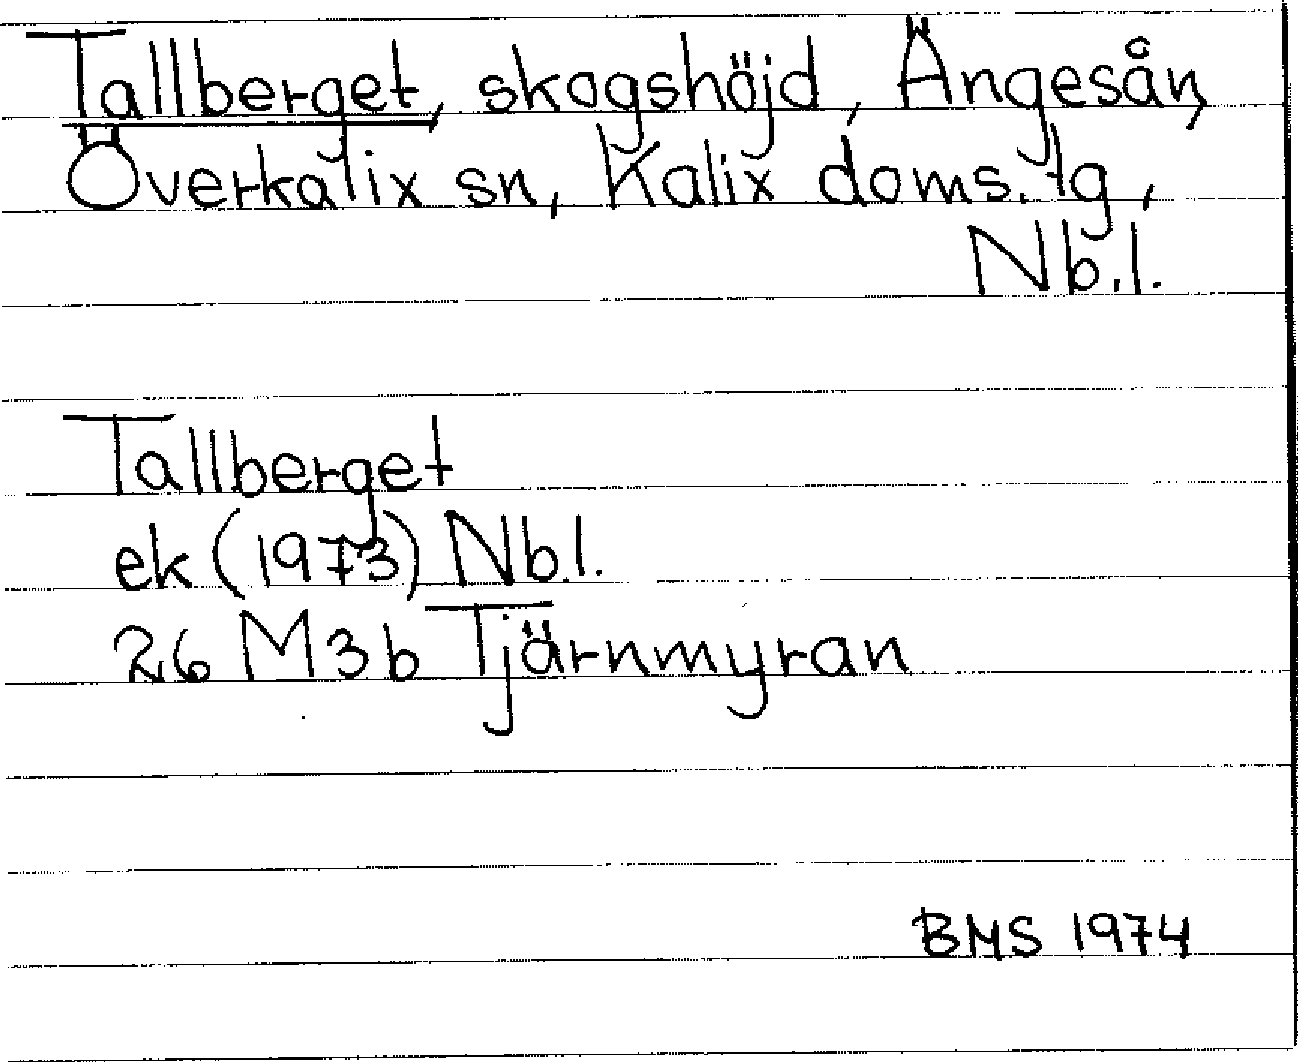 Tallberget, skogshöjd, Ängesån,
Överkalix sn, Kalix doms. tg,
Nb.l.
Tallberget
ek (1973) Nb.l.
26 M 3 b Tjärnmyran
BMS 1974